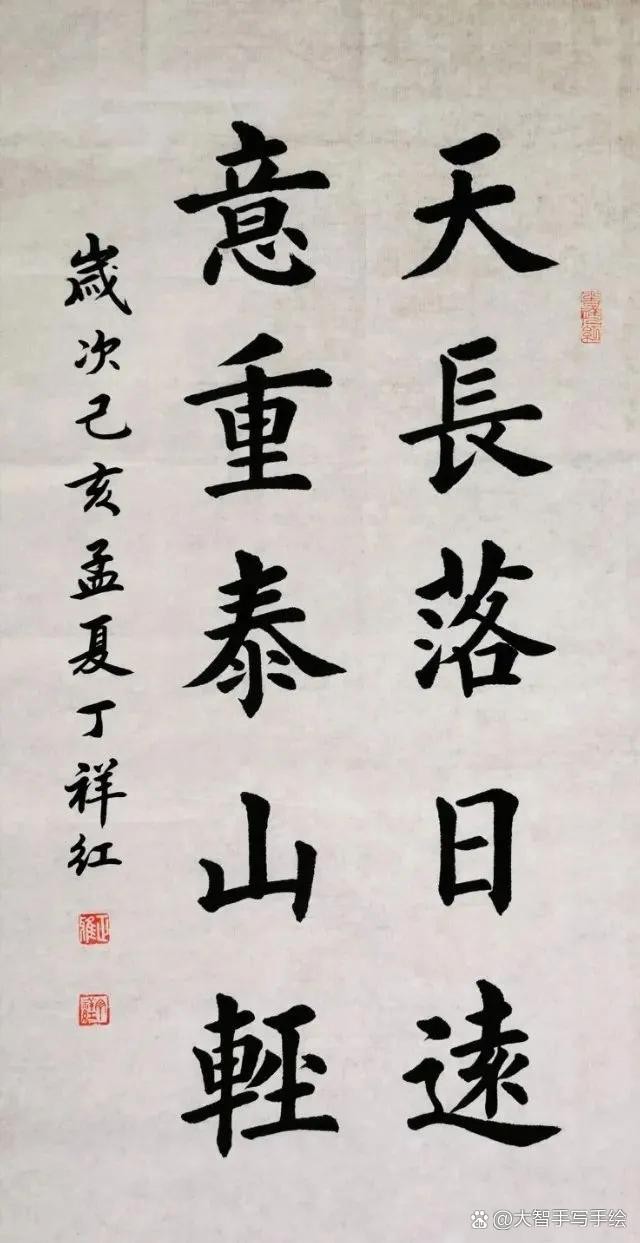 天長落日遠
意重泰山輕
歲次己亥孟夏丁祥红
@大智手写手绘